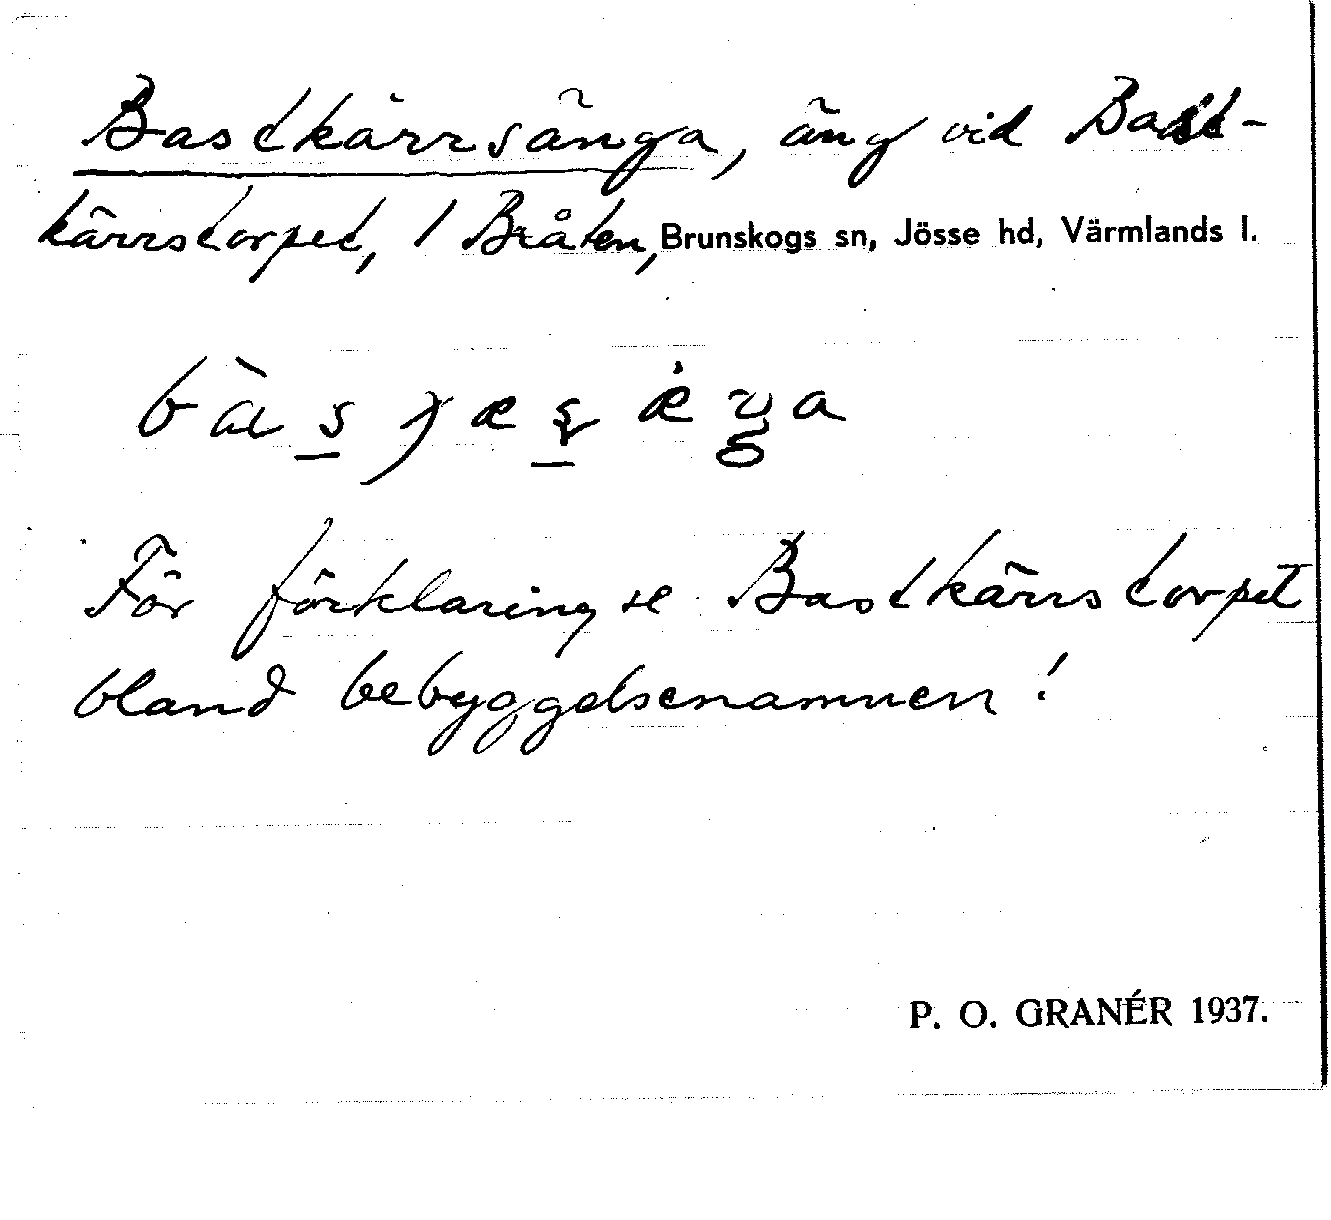 Bastkärrsänga, äng vid Bast-
kärrstorpet, 1 Bråten, Brunskogs sn, Jösse hd, Värmlands l.
För förklaring se Bastkärrstorpet
bland bebyggelsenamnen!
P. O. GRANÉR 1937.